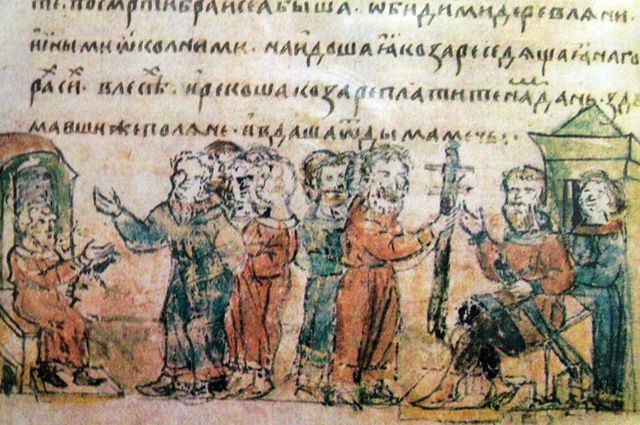 те. по смр҃ти браиⷭ сеа быша ѡбидими деревлѧни
иными ѡколними. наидоша ꙗ козаре седѧщаꙗ на го
раⷯ сиⷯ. в лесѣⷯ. и рекоша козаре платите наⷨ дань. здꙋ
мавши же полѧне. и вдаша ѿ дыма мечь :·